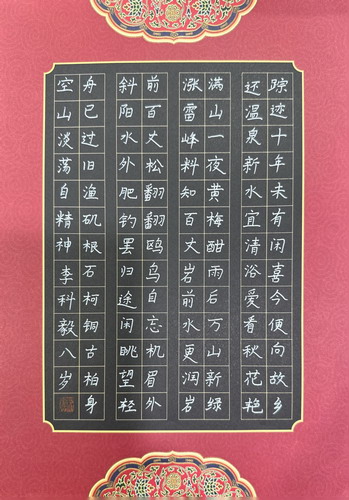 踪迹十年未有闲喜今便向故乡
还温泉新水宜清浴爱看秋花艳
满山一夜黄梅酣雨后万山新绿
涨雷峰料知百丈岩前水更润岩
前百丈松翻翻鸥乌自忘机眉外
斜阳水外肥钓罢归途闲眺望轻
舟已过旧渔矶根石柯铜古柏身
空山淡荡自精神李科毅八岁